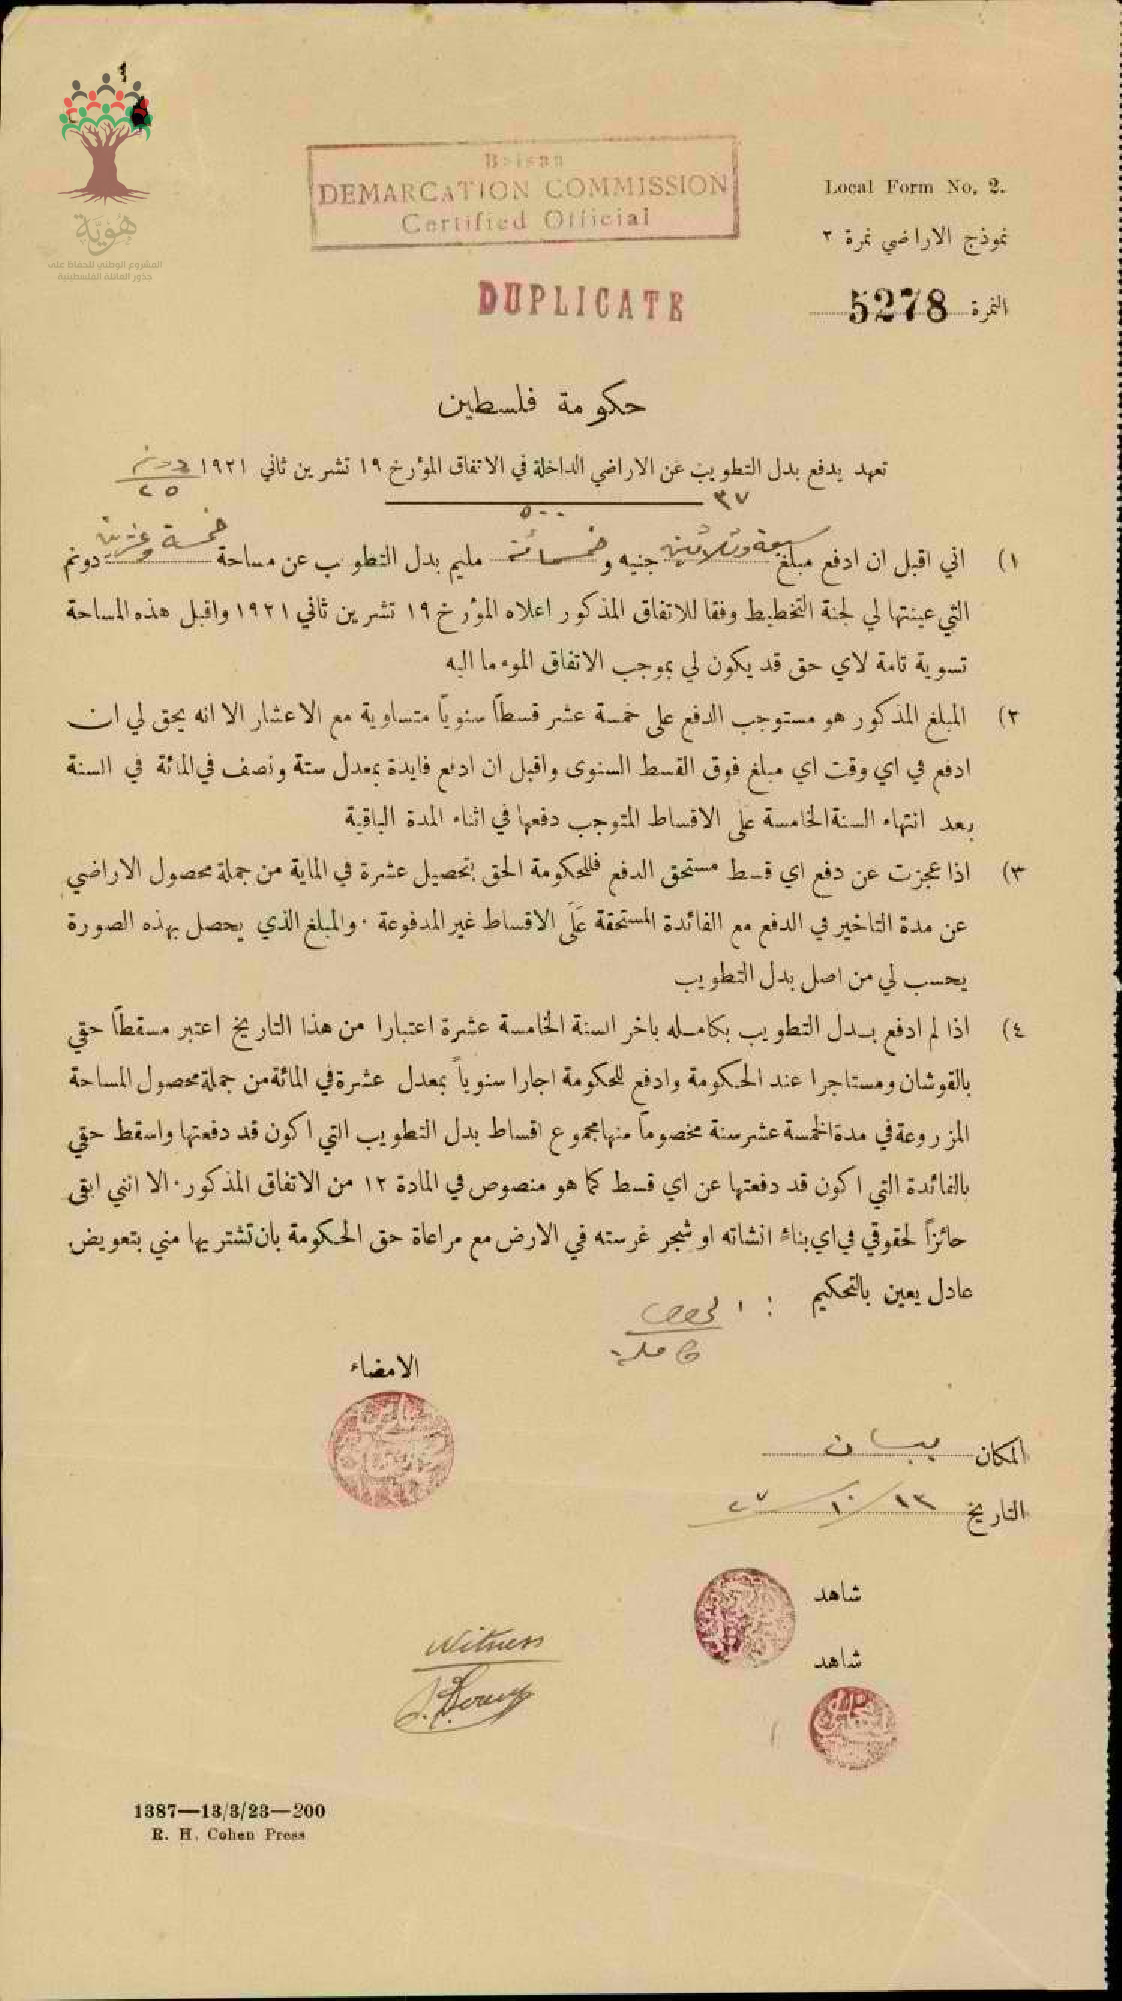 هُوِيَّة
المشروع الوطني للحفاظ على
جذور العائلة الفلسطينية
Beisan
DEMARCATION COMMISSION
Certified Official
Local Form No. 2.
نموذج الاراضي نمرة ٢
DUPLICATE
النمرة 5278
حكومة فلسطين
تعهد يدفع بدل التطويب عن الاراضي الداخلة في الاتفاق المؤرخ ١٩ تشرين ثاني ١٩٢١ دونم ٢٥
٣٧ ٥٠٠
١) اني اقبل ان ادفع مبلغ سبعة وثلاثين جنيه و خمسمائة مليم بدل التطويب عن مساحة خمسة وعشرين دونم
التي عينتها لي لجنة التخطيط وفقا للاتفاق المذكور اعلاه المؤرخ ١٩ تشرين ثاني ١٩٢١ واقبل هذه المساحة
تسوية تامة لاي حق قد يكون لي بموجب الاتفاق الموما اليه
٢) المبلغ المذكور هو مستوجب الدفع على خمسة عشر قسطاً سنوياً متساوية مع الاعشار الا انه يحق لي ان
ادفع في اي وقت اي مبلغ فوق القسط السنوى واقبل ان ادفع فايدة بمعدل ستة ونصف في المائة في السنة
بعد انتهاء السنة الخامسة على الاقساط المتوجب دفعها في اثناء المدة الباقية
٣) اذا عجزت عن دفع اي قسط مستحق الدفع فللحكومة الحق بتحصيل عشرة في الماية من جملة محصول الاراضي
عن مدة التاخير في الدفع مع الفائدة المستحقة عَلَى الاقساط غير المدفوعة . والمبلغ الذي يحصل بهذه الصورة
يحسب لي من اصل بدل التطويب
٤) اذا لم ادفع بدل التطويب بكامله باخر السنة الخامسة عشرة اعتبارا من هذا التاريخ اعتبر مسقطاً حقي
بالقوشان ومستاجرا عند الحكومة وادفع للحكومة اجارا سنوياً بمعدل عشرة في المائة من جملة محصول المساحة
المزروعة في مدة الخمسة عشر سنة مخصوماً منها مجموع اقساط بدل التطويب التي اكون قد دفعتها واسقط حقي
بالفائدة التي اكون قد دفعتها عن اي قسط كما هو منصوص في المادة ١٢ من الاتفاق المذكور . الا انني ابقى
حائزاً لحقوقي في اي بناء انشاته او شجر غرسته في الارض مع مراعاة حق الحكومة بان تشتريها مني بتعويض
عادل يعين بالتحكيم
الامضاء
المكان بيسان
التاريخ ١٣/١٠/٢٧
شاهد
شاهد
Witness
1387—13/3/23—200
R. H. Cohen Press